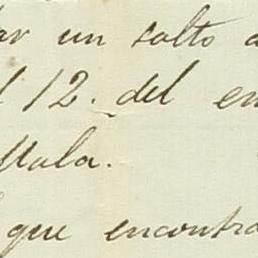 ar un salto a
l 12. del en
Mala.
que encontra